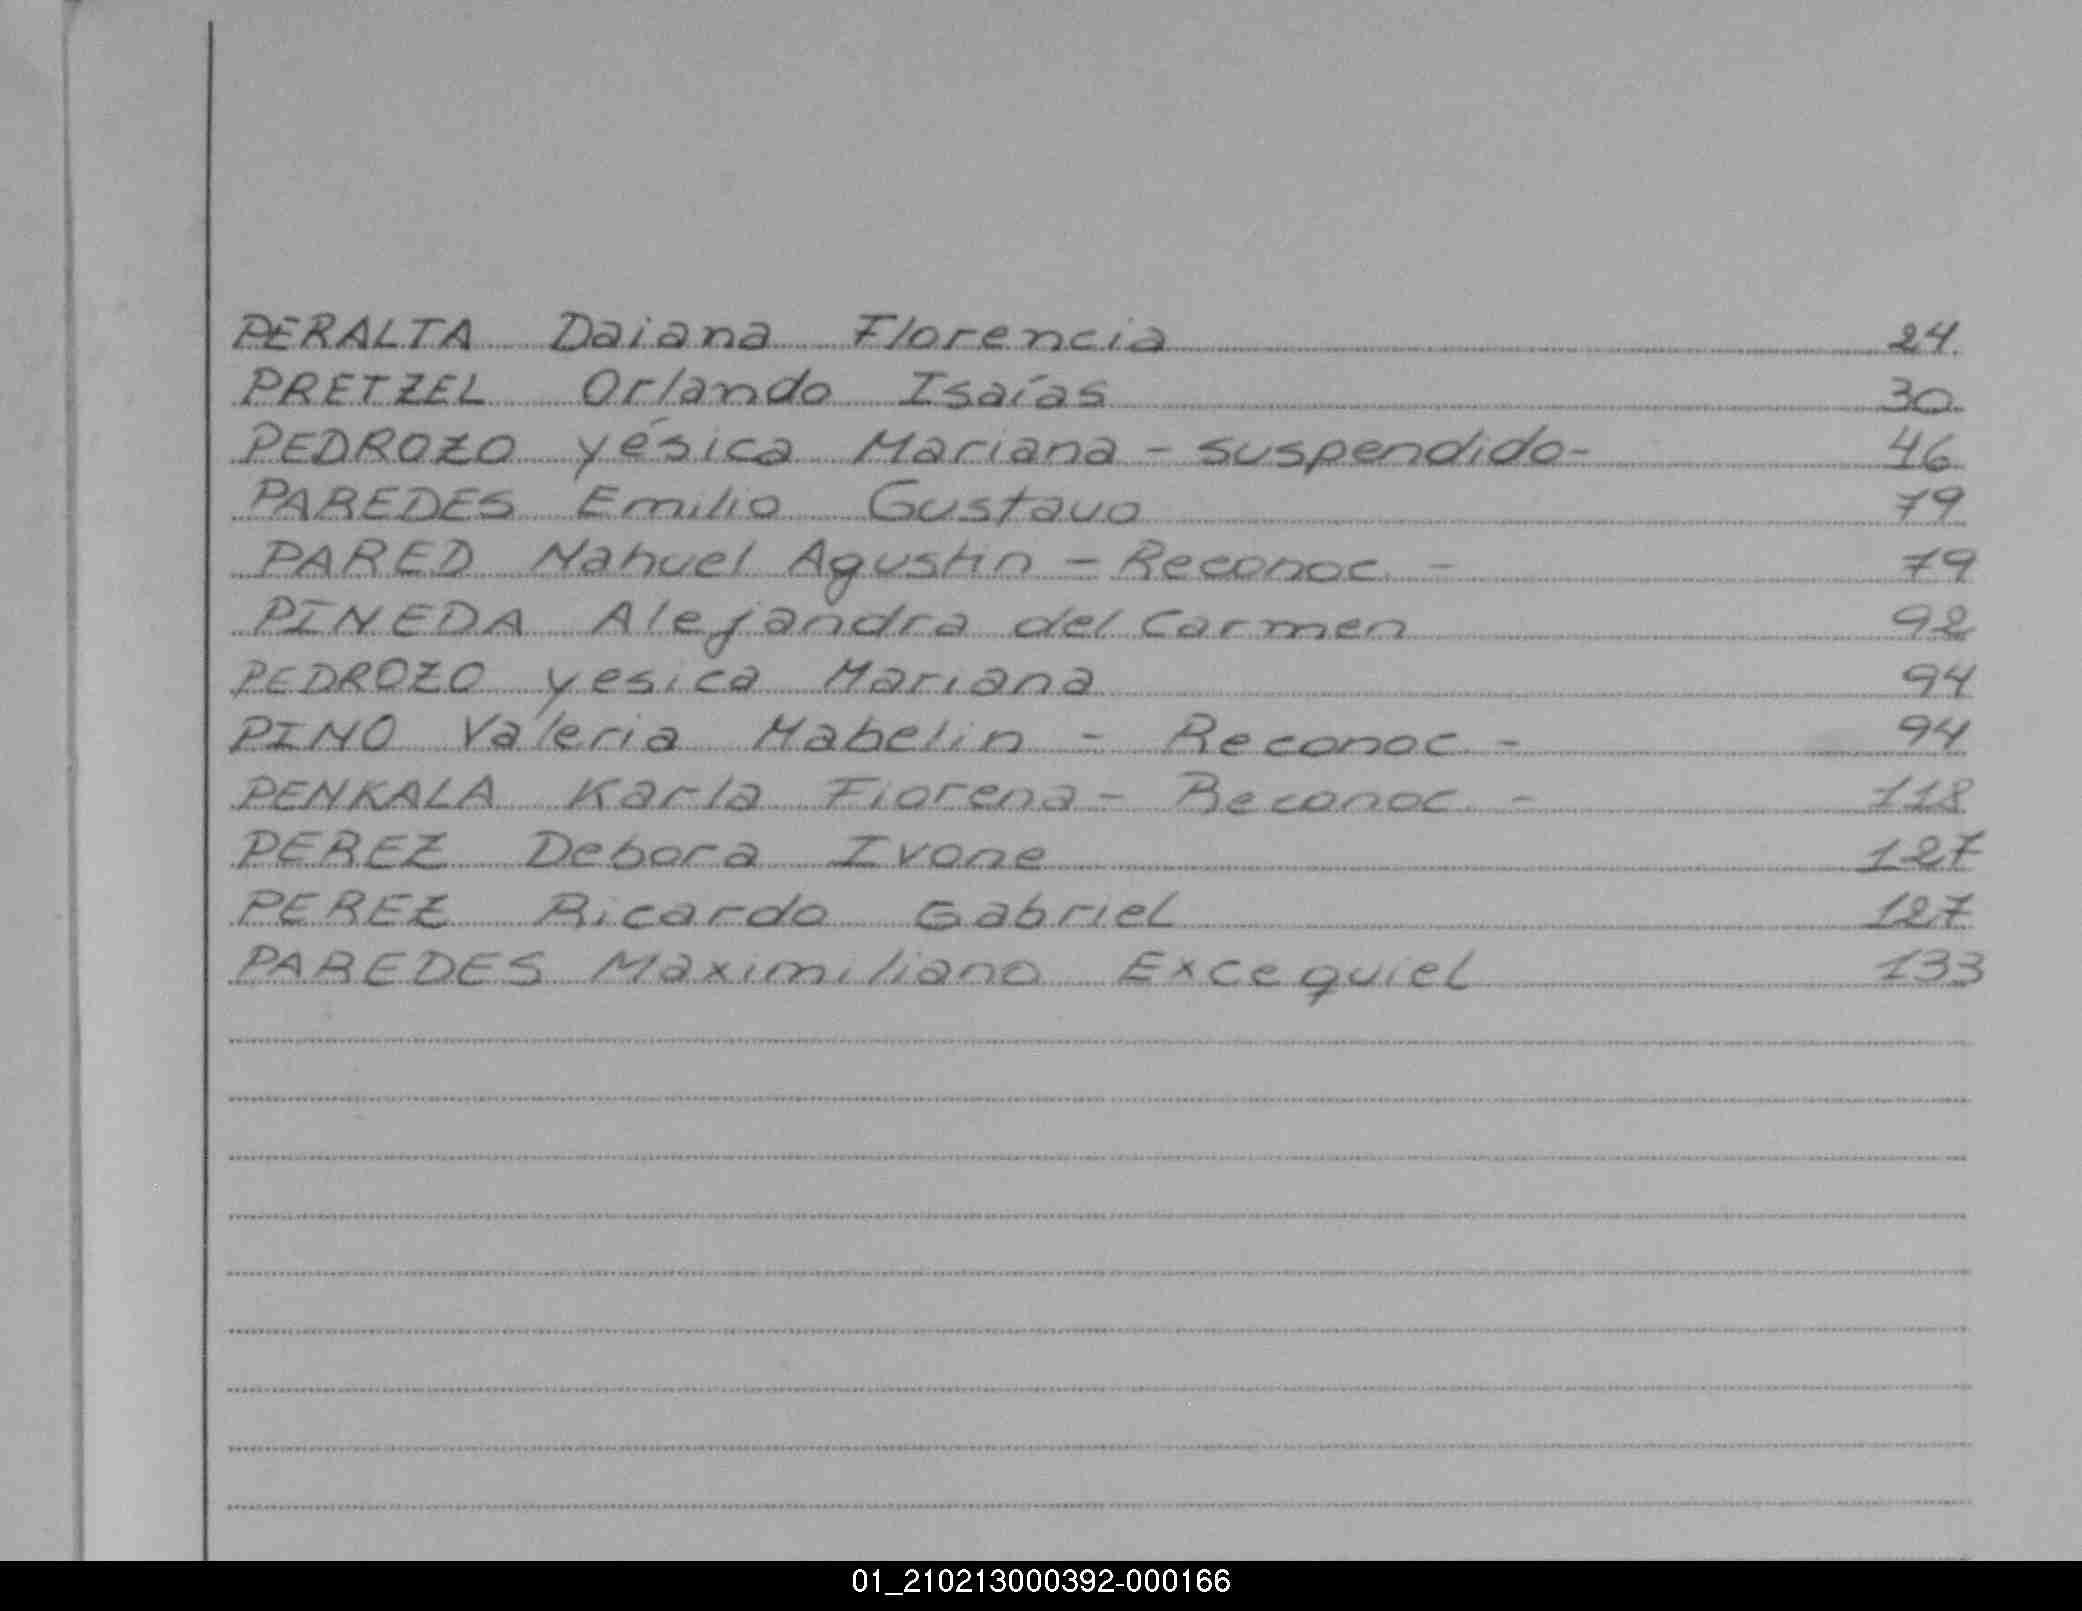 PERALTA Daiana Florencia 24
PRETZEL Orlando Isaías 30
PEDROZO Yésica Mariana - suspendido- 46
PAREDES Emilio Gustavo 79
PARED Nahuel Agustin - Reconoc. - 79
PINEDA Alejandra del Carmen 92
PEDROZO Yesica Mariana 94
PINO Valeria Mabelin - Reconoc. - 94
PENKALA Karla Fiorena - Reconoc. - 118
PEREZ Debora Ivone 127
PEREZ Ricardo Gabriel 127
PAREDES Maximiliano Excequiel 133
01_210213000392-000166